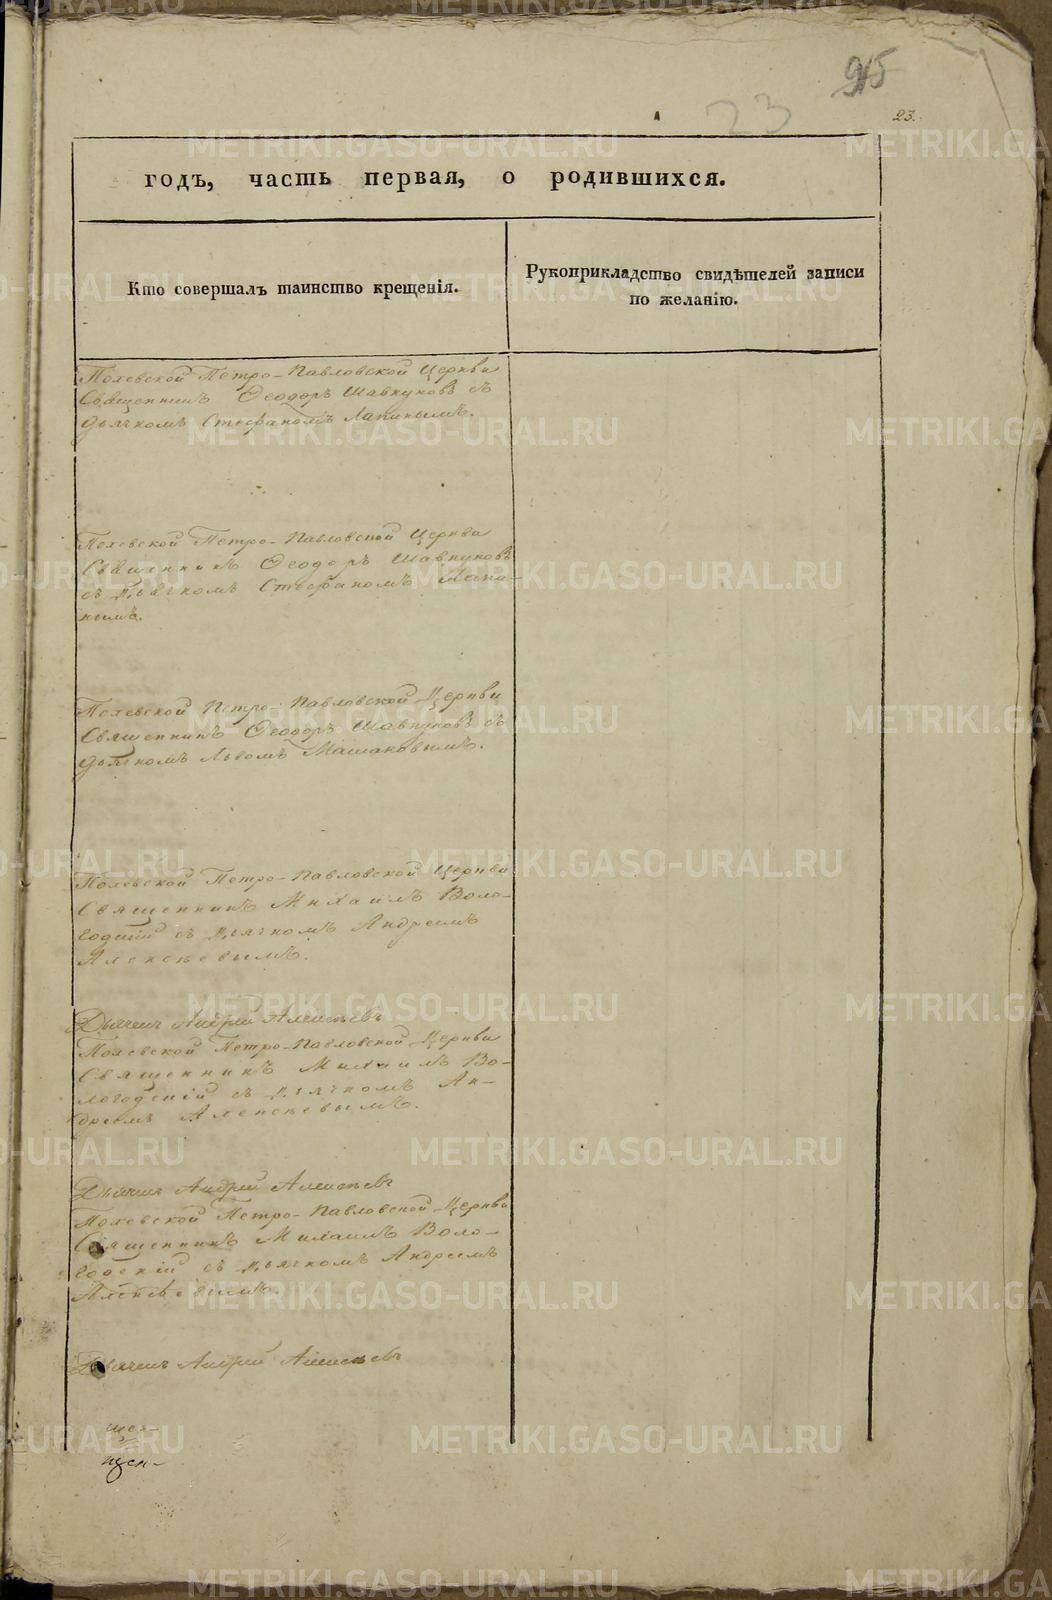 95
23
23.
годъ, часть первая, о родившихся.
Кто совершалъ таинство крещенія.
Рукоприкладство свидѣтелей записи
по желанію.
Полевской Петро-Павловской Церкви
Священникъ Ѳеодоръ Шавкуновъ съ
дьячкомъ Стефаномъ Лапинымъ.
Полевской Петро-Павловской Церкви
Священникъ Ѳеодоръ Шавкуновъ
съ дьячкомъ Стефаномъ Лапи-
нымъ.
Полевской Петро-Павловской Церкви
Священникъ Ѳеодоръ Шавкуновъ съ
дьячкомъ Львомъ
Полевской Петро-Павловской Церкви
Священникъ Михаилъ Воло-
годскій съ дьячкомъ Андреемъ
Алексѣевымъ.
Дьячекъ Андрей Алексѣевъ
Полевской Петро-Павловской Церкви
Священникъ Михаилъ Во-
логодскій съ дьячкомъ Ан-
дреемъ Алексѣевымъ.
Дьячекъ Андрей Алексѣевъ
Полевской Петро-Павловской Церкви
Священникъ Михаилъ Воло-
годскій съ дьячкомъ Андреемъ
Алексѣевымъ.
Дьячекъ Андрей Алексѣевъ
METRIKI.GASO-URAL.RU